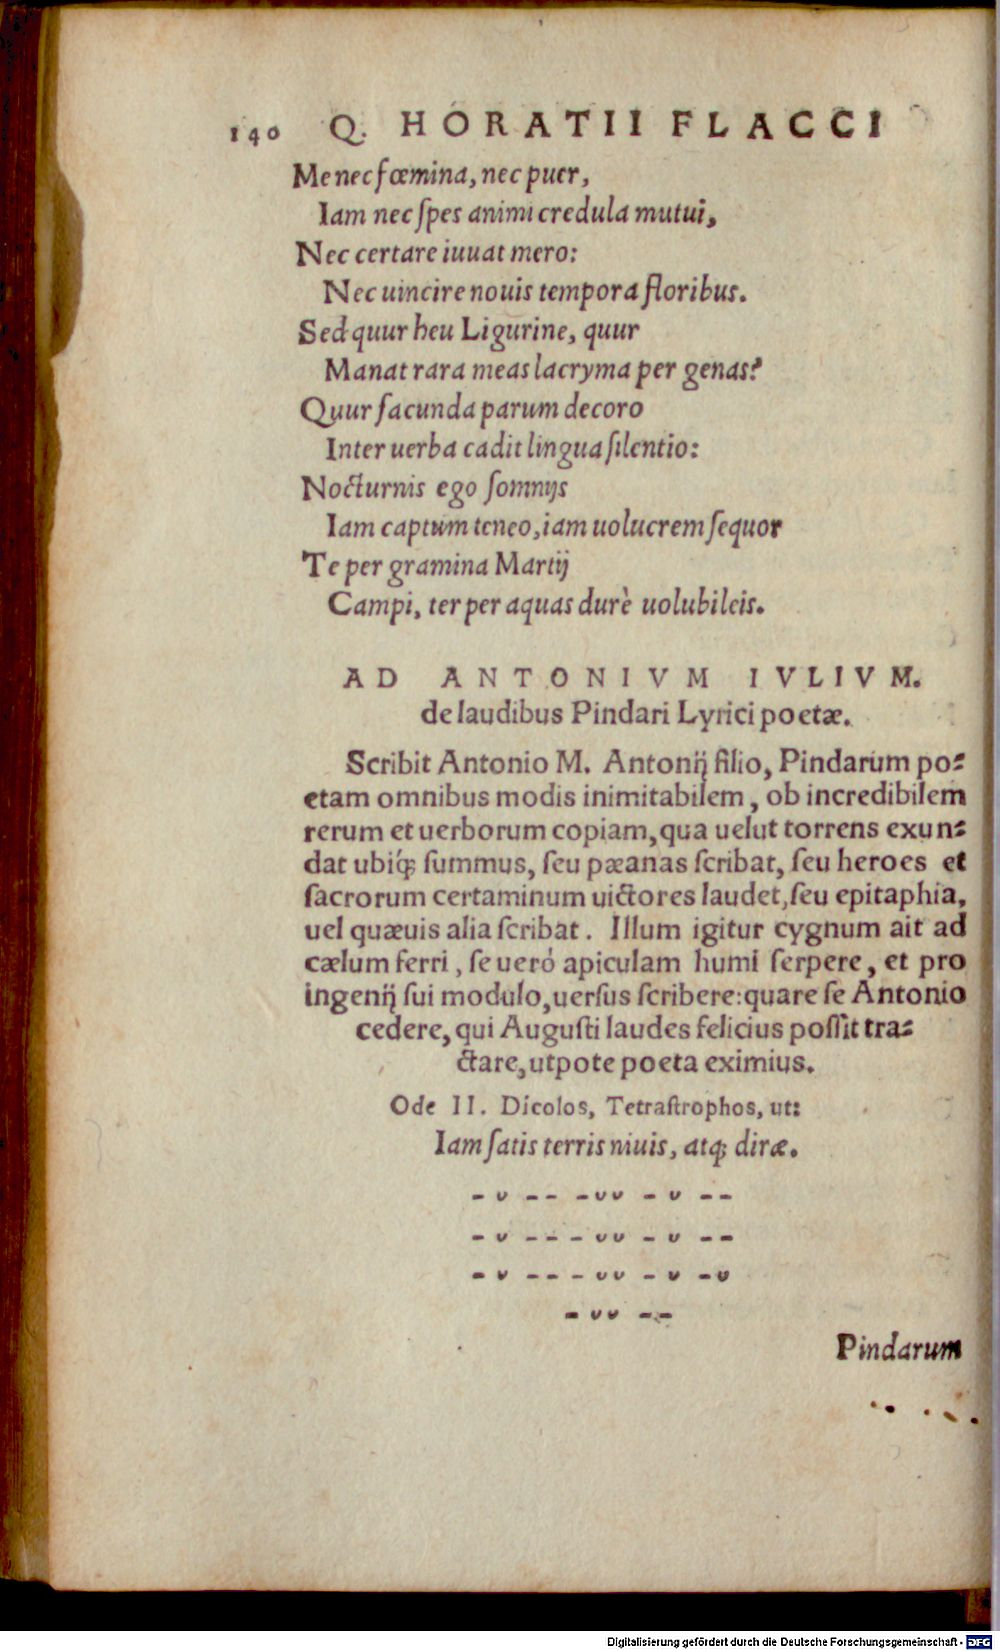 140 Q. HORATII FLACCI
Me nec fœmina, nec puer,
Iam nec ſpes animi credula mutui,
Nec certare iuuat mero:
Nec uincire nouis tempora floribus.
Sed quur heu Ligurine, quur
Manat rara meas lacryma per genas?
Quur facunda parum decoro
Inter uerba cadit lingua ſilentio:
Nocturnis ego ſomnijs
Iam captum teneo, iam uolucrem ſequor
Te per gramina Martij
Campi, ter per aquas durè uolubileis.
AD ANTONIVM IVLIVM.
de laudibus Pindari Lyrici poetæ.
Scribit Antonio M. Antonij filio, Pindarum po⸗
etam omnibus modis inimitabilem, ob incredibilem
rerum et uerborum copiam, qua uelut torrens exun⸗
dat ubiq́; ſummus, ſeu pæanas ſcribat, ſeu heroes et
ſacrorum certaminum uictores laudet, ſeu epitaphia,
uel quæuis alia ſcribat. Illum igitur cygnum ait ad
cælum ferri, ſe ueró apiculam humi ſerpere, et pro
ingenij ſui modulo, uerſus ſcribere: quare ſe Antonio
cedere, qui Auguſti laudes felicius poſſit tra⸗
ctare, utpote poeta eximius.
Ode II. Dicolos, Tetraſtrophos, ut:
Iam ſatis terris niuis, atq; diræ.
– ᴗ – – – ᴗᴗ – ᴗ – –
– ᴗ – – – ᴗᴗ – ᴗ – –
– ᴗ – – – ᴗᴗ – ᴗ – ᴗ
– ᴗᴗ – –
Pindarum
Digitalisierung gefördert durch die Deutsche Forschungsgemeinschaft - DFG